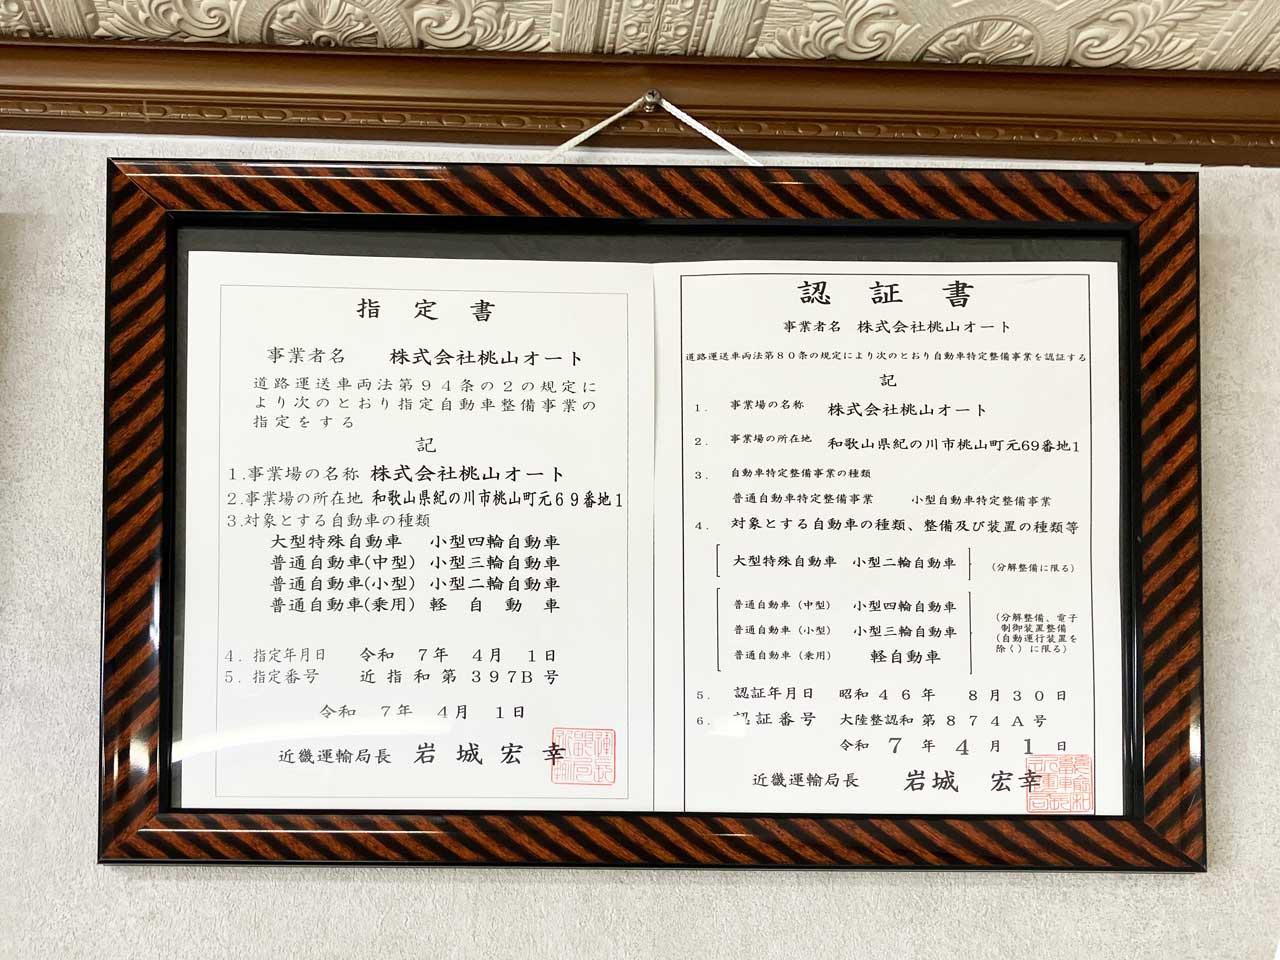 指定書
事業者名 株式会社桃山オート
道路運送車両法第94条の2の規定に
より次のとおり指定自動車整備事業の
指定をする
記
1.事業場の名称 株式会社桃山オート
2.事業場の所在地 和歌山県紀の川市桃山町元69番地1
3.対象とする自動車の種類
大型特殊自動車 小型四輪自動車
普通自動車(中型) 小型三輪自動車
普通自動車(小型) 小型二輪自動車
普通自動車(乗用) 軽自動車
4.指定年月日 令和 7年 4月 1日
5.指定番号 近指和第397B号
令和 7年 4月 1日
近畿運輸局長 岩城宏幸
認証書
事業者名 株式会社桃山オート
道路運送車両法第80条の規定により次のとおり自動車特定整備事業を認証する
記
1. 事業場の名称 株式会社桃山オート
2. 事業場の所在地 和歌山県紀の川市桃山町元69番地1
3. 自動車特定整備事業の種類
普通自動車特定整備事業 小型自動車特定整備事業
4. 対象とする自動車の種類、整備及び装置の種類等
大型特殊自動車 小型二輪自動車 (分解整備に限る)
普通自動車(中型) 小型四輪自動車
普通自動車(小型) 小型三輪自動車
普通自動車(乗用) 軽自動車
(分解整備、電子
制御装置整備
(自動運行装置を
除く)に限る)
5. 認証年月日 昭和46年 8月30日
6. 認証番号 大陸整認和第874A号
令和 7年 4月 1日
近畿運輸局長 岩城 宏幸